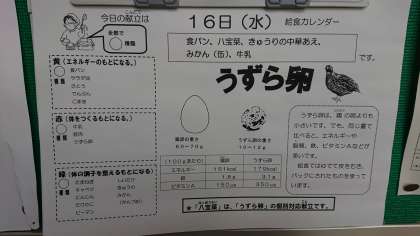 今日の献立は
全部で
種類
16日(水) 給食カレンダー
食パン、八宝菜、きゅうりの中華あえ、
みかん(缶)、牛乳
です。
黄(エネルギーのもとになる。)
食パン
サラダ油
さとう
でんぷん
ごま油
赤(体をつくるもとになる。)
牛乳
豚肉
うずら卵
緑(体の調子を整えるもとになる。)
たまねぎ
キャベツ
にんじん
たけのこ
ピーマン
しょうが
きゅうり
みかん
うずら卵
鶏卵の重さ
60~70g
うずら卵の重さ
10~12g
(100gあたり)
鶏卵
うずら卵
エネルギー
151kcal
179kcal
鉄
1.8g
3.1g
ビタミンA
150㎍
350㎍
うずら卵は、鶏の卵よりも
小さいです。でも、同じ量で
比べると、エネルギーや
脂質、鉄、ビタミンAなどが
多いです。
給食ではゆでて皮をむき、
パックにされたものを使って
います。
★「八宝菜」は、「うずら卵」の個別対応献立です。